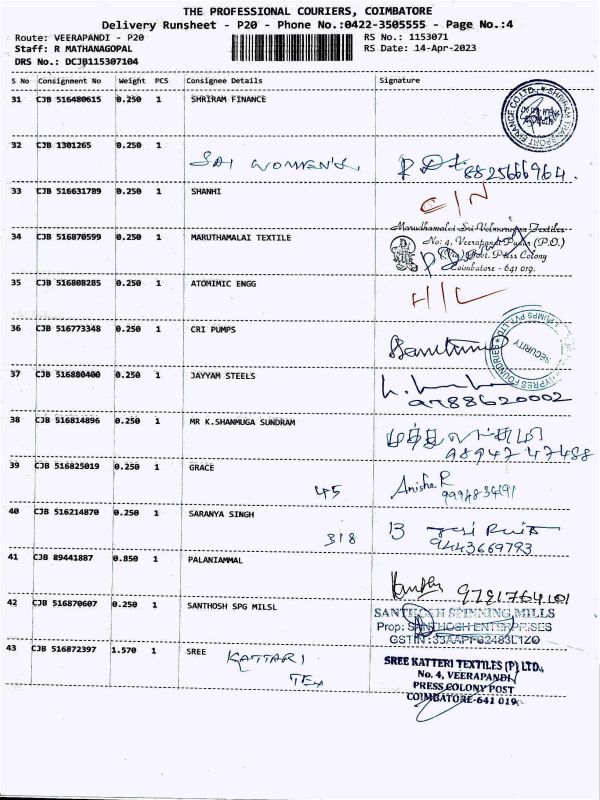 THE PROFESSIONAL COURIERS, COIMBATORE
Delivery Runsheet - P20 - Phone No.:0422-3505555 - Page No.:4
Route: VEERAPANDI - P20
RS No.: 1153071
Staff: R MATHANAGOPAL
RS Date: 14-Apr-2023
DRS No.: DCJB115307104
S No Consignment No Weight PCS Consignee Details Signature
31 CJB 516480615 0.250 1 SHRIRAM FINANCE
32 CJB 1301265 0.250 1 SAI WOMEN'S 8825666964.
33 CJB 516631789 0.250 1 SHANHI C/N
34 CJB 516870599 0.250 1 MARUTHAMALAI TEXTILE
Marudhamalai Sri Velmurugan Textiles
No: 4, Veerapandi Pudur (P.O.)
Press Colony
Coimbatore - 641 019.
35 CJB 516808285 0.250 1 ATOMIMIC ENGG H/L
36 CJB 516773348 0.250 1 CRI PUMPS
SECURITY
37 CJB 516880400 0.250 1 JAYYAM STEELS
9788620002
38 CJB 516814896 0.250 1 MR K.SHANMUGA SUNDRAM
9894747488
39 CJB 516825019 0.250 1 GRACE 45 Anisha R
9994834191
40 CJB 516214870 0.250 1 SARANYA SINGH 318
9443669793
41 CJB 89441887 0.850 1 PALANIAMMAL
42 CJB 516870607 0.250 1 SANTHOSH SPG MILSL
SANTHOSH SPINNING MILLS
Prop: SANTHOSH ENTERPRISES
43 CJB 516872397 1.570 1 SREE KATTARI
TEX
SREE KATTERI TEXTILES (P) LTD.,
No. 4, VEERAPANDI
PRESS COLONY POST
COIMBATORE-641 019